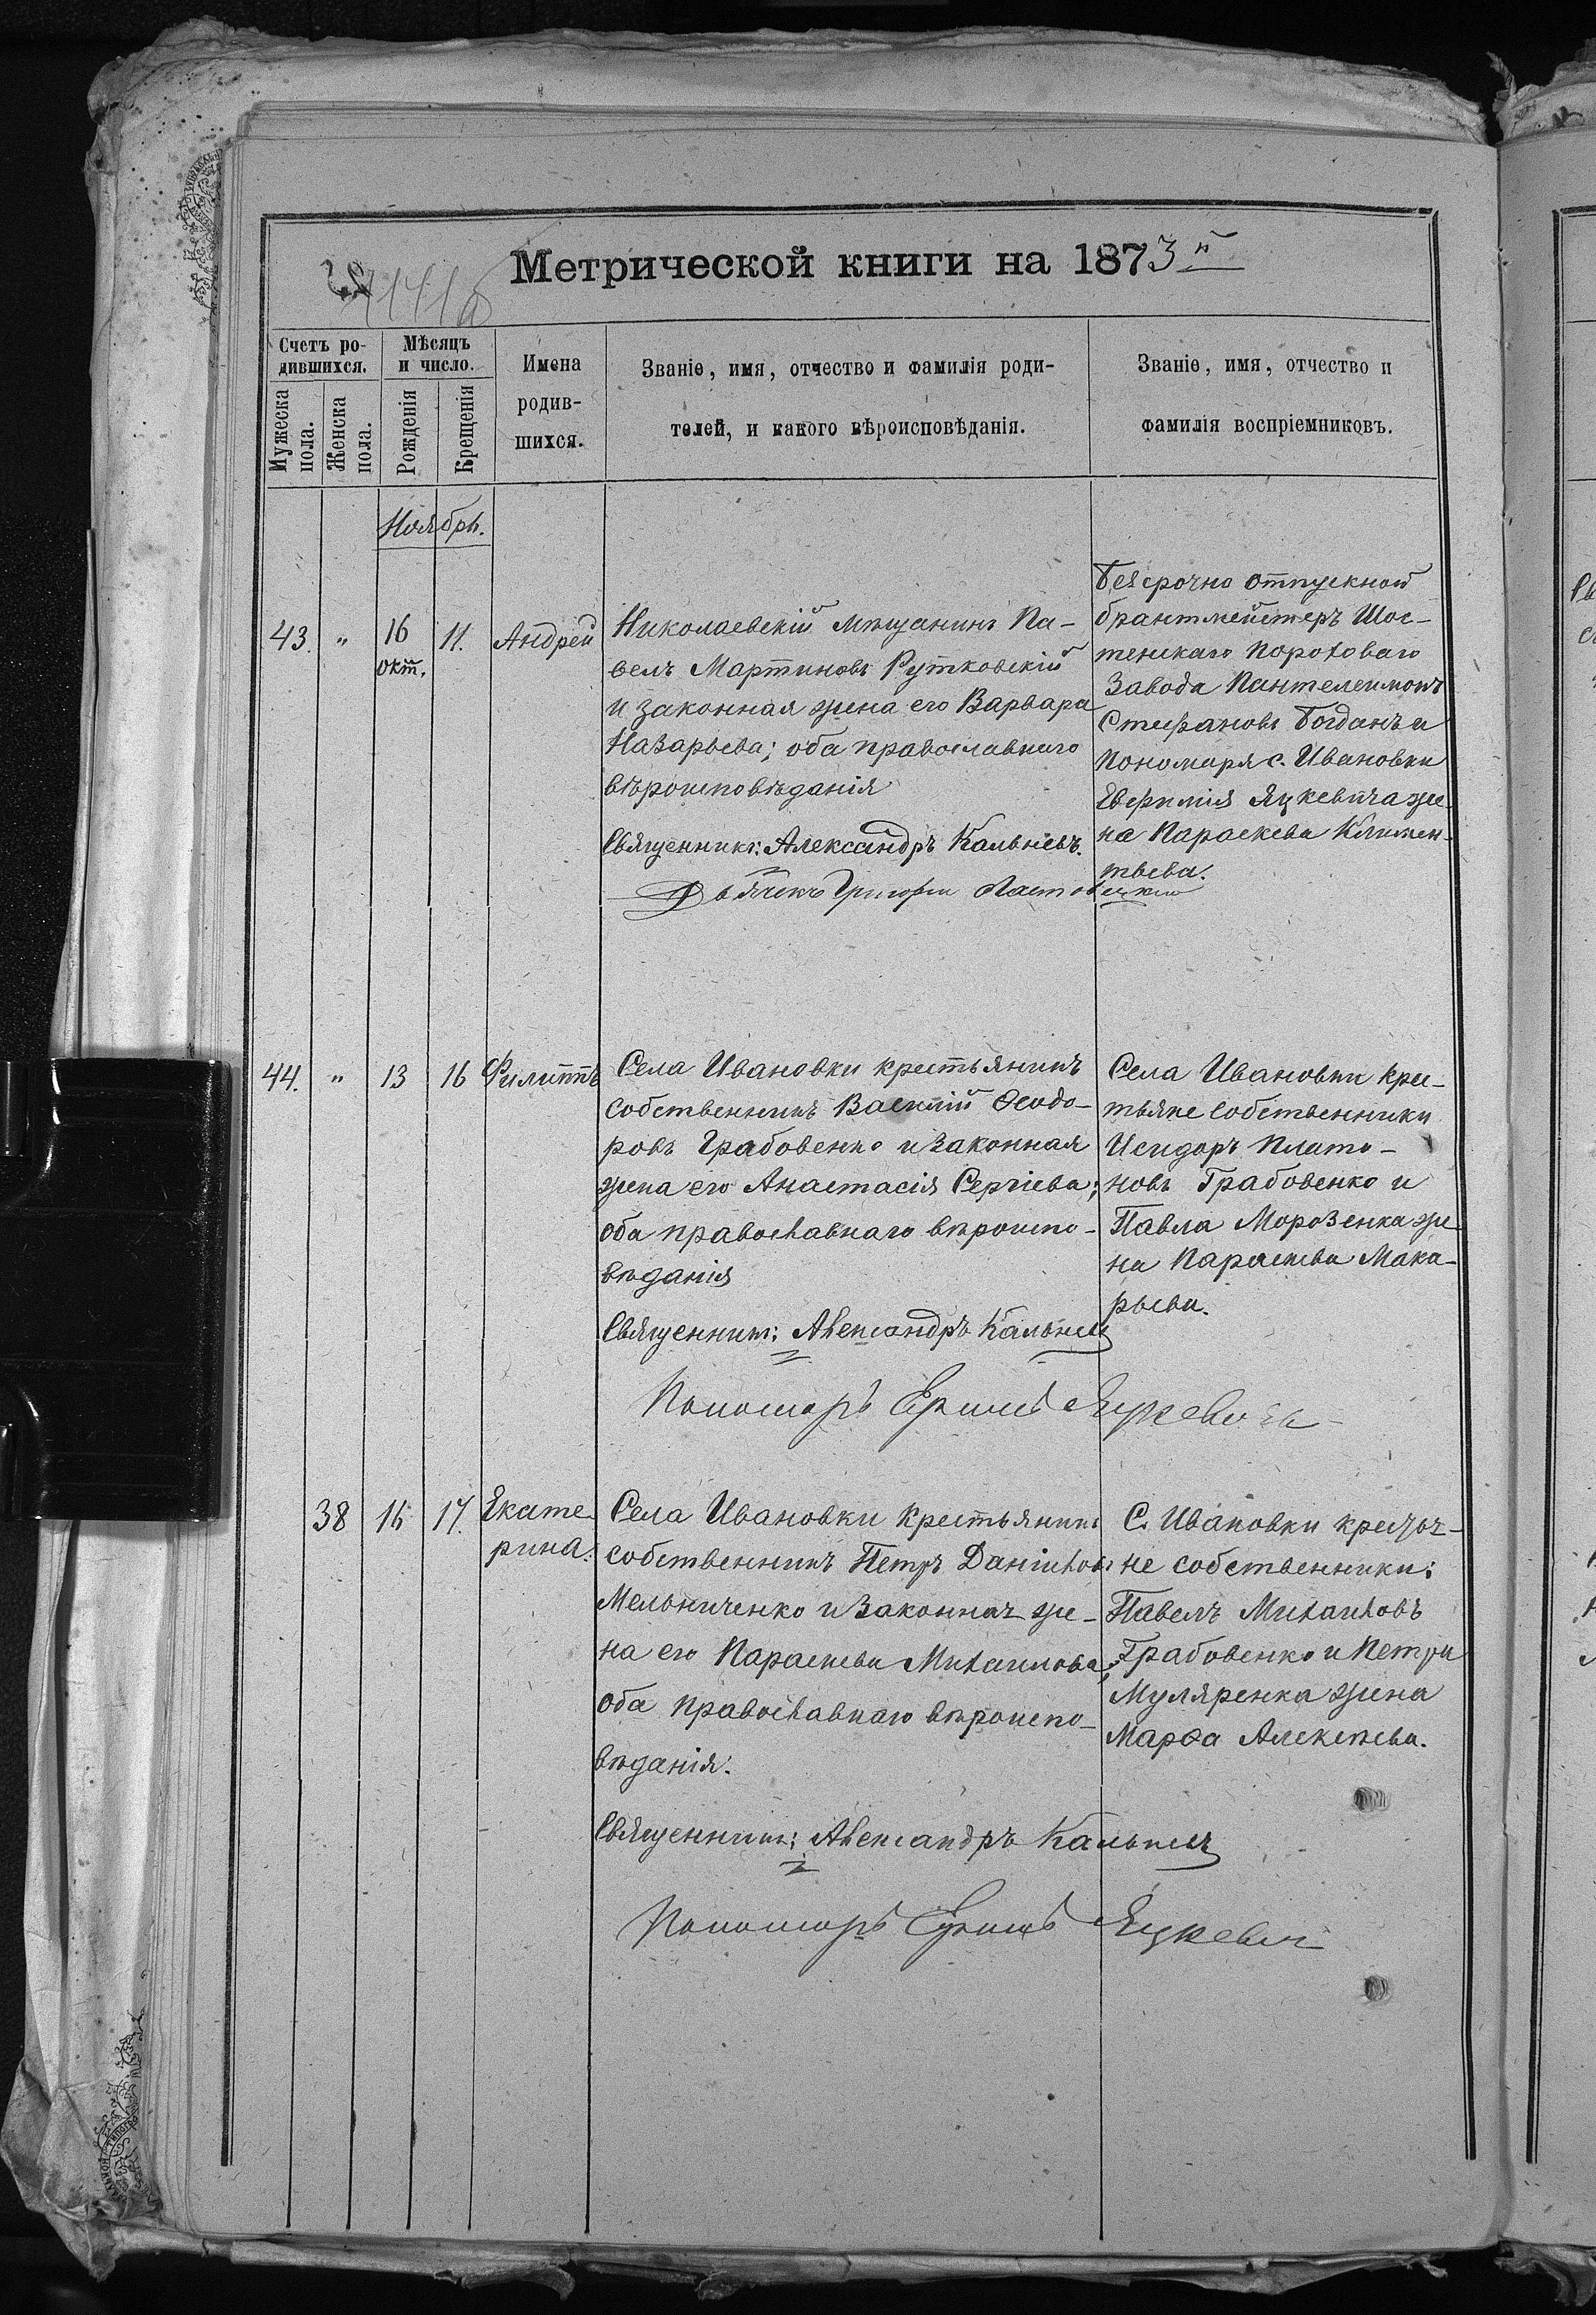 Метрической книги на 1873й
Счетъ ро-
дившихся.
Мужеска пола.
Женска пола.
Мѣсяцъ
и число.
Рожденія
Крещенія
Имена
родив-
шихся.
Званіе, имя, отчество и фамилія роди-
телей, и какого вѣроисповѣданія.
Званіе, имя, отчество и
фамилія воспріемниковъ.
Ноябрь.
43. " 16 11. Андрей
окт.
Николаевскій мѣщанинъ Па-
велъ Мартиновъ Рутковскій
и законная жена его Варвара
Назарьева; оба православнаго
вѣроисповѣданія
Священникъ: Александръ Кальневъ.
Дьячекъ Григорій Ластовецкій
Безсрочно отпускной
брантмейстеръ Шос-
тенскаго Пороховаго
Завода Пантелеимонъ
Стефановъ Богданъ и
Пономаря с. Ивановки
Евфимія Яцкевича же-
на Параскева Климен-
тьева.
44. " 13 16 Филиппъ
Села Ивановки крестьянинъ
собственникъ Василій Ѳеодо-
ровъ Грабовенко и законная
жена его Анастасія Сергіева;
оба православнаго вѣроиспо-
вѣданія
Священникъ: Александръ Кальневъ
Пономарь Ефимъ Яцкевичъ
Села Ивановки кре-
тьяне собственники
Исидоръ Плато-
новъ Грабовенко и
Павла Морозенка же-
на Параскева Мака-
рьева.
38 16 17. Екате-
рина.
Села Ивановки крестьянинъ
собственникъ Петръ Даніиловъ
Мельниченко и законная же-
на его Параскева Михаилова;
оба православнаго вѣроиспо-
вѣданія.
Священникъ: Александръ Кальневъ
Пономарь Ефимъ Яцкевич
С. Ивановки крестья-
не собственники:
Павелъ Михаиловъ
Грабовенко и Петра
Муляренка жена
Марѳа Алексѣева.